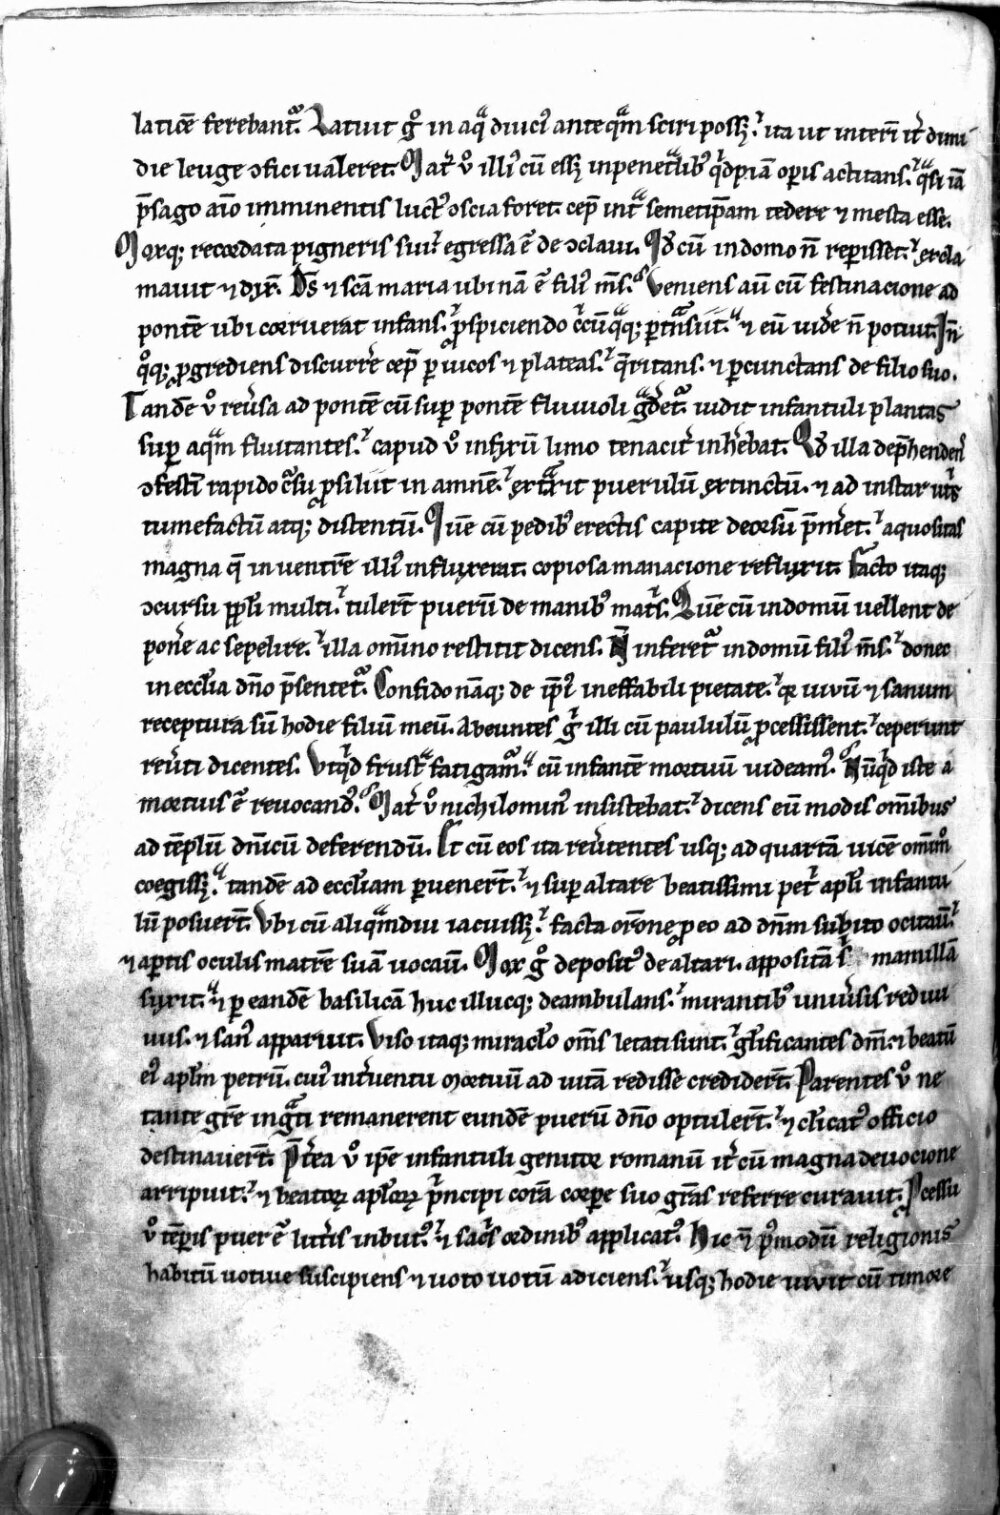 laticē ferebant᷑. Latuit gͦ in aqͣ diuci᷒ anteqͣm sciri posset. ita ut interī it᷑ dimi
die leuge ꝯfici ualeret. Mat᷑ uͦ illi᷒ cū esset inpenet͛lib᷒ qͥdpiā oꝑis actitans. qͣsi iā
p̄sago aīo imminentis luct᷒ ꝯscia foret. cep̄ intͣ semetip̄am tedere ⁊ mesta esse.
Moxq; recordata pigneris sui. egressa ē de ꝯclaui. Qd̕ cū in domo n̄ reperisset. excla
mauit ⁊ dix̄. Ds̄ ⁊ sc̄a maria ubi nā ē fili᷒ m̄s. Veniens aū cū festinacione ad
pontē ubi corruerat infans. ꝓspiciendo c͛cūqͣq; ꝑtn̄siit. ⁊ eū uid̕e n̄ potuit. In̄
qͦq; ꝓgrediens discurr̕e cep̄ ꝑ uicos ⁊ plateas. q̄ritans. ⁊ ꝑcunctans de filio suo.
Tandē uͦ reu̕sa ad pontē cū suꝑ pontē fluuioli gͣd̕et᷑. uidit infantuli plantas
suꝑ aqͣm fluitantes. capud uͦ infixū limo tenacit᷑ inh̕ebat. Qd̕ illa dep̄henden᷒
ꝯfestī rapido c͛su ꝓsiliit in amnē. extͣxit puerulū extinctū. ⁊ ad instar ut᷑s
tumefactū atq; distentū. Quē cū pedib᷒ erectis capite deorsū p̄m̕et. aquositas
magna q̄ in uentrē illi᷒ influxerat. copiosa manacione refluxit. Facto itaq;
ꝯcursu ppl̕i multi. tulert̄ puerū de manib᷒ mat᷑s. Quē cū in domū uellent de
pon̕e ac sepelire. illa om̄ino restitit dicens. N̄ inferet᷑ in domū fili᷒ m̄s. donec
in eccl̕ia dn̄o p̄sentet᷑. Confido nāq; de ip̄i᷒ ineffabili pietate. qͥ uiuū ⁊ sanum
receptura sū hodie filiū meū. Abeuntes gͦ illi cū paululū ꝓcessissent. ceperunt
reu̕ti dicentes. Vtqͥd frustͣ fatigam᷑. cū infantē mortuū uideam᷒. Nūqͥd iste a
mortuis ē reuocand᷒. Mat᷑ uͦ nichilomin᷒ insistebat. dicens eū modis om̄ibus
ad tēplū dn̄icū deferendū. Et cū eos ita reu̕tentes usq; ad quartā uicē om̄imͦ
coegisset. tandē ad eccl̕iam ꝑuenert̄. ⁊ suꝑ altare beatissimi pet᷑ apl̕i infantu
lū posuert̄. Vbi cū aliqͣmdiu iacuisset. facta or̄one ꝓ eo ad dn̄m subito oscitau̅.
⁊ aꝑtis oculis matrē suā uocau̅. Mox gͦ deposit᷒ de altari. appositā s͛ mamillā
suxit. ⁊ ꝑ eandē basilicā huc illucq; deambulans. mirantib᷒ uniu̕sis rediui
uus. ⁊ san᷒ apparuit. Viso itaq; miracl̕o om̄s letati sunt. gl̕ificantes dn̄m ⁊ beatū
ei᷒ apl̕m petrū. cui᷒ int̕uentu mortuū ad uitā redisse crediderт̄. Parentes uͦ ne
tante gr̄e ingͣti remanerent eundē puerū dn̄o optulert̄. ⁊ cl̕icat᷒ officio
destinauert̄. Pt̕ea uͦ ip̄e infantuli genitor romanū it᷑ cū magna deuocione
arripuit. ⁊ beatoꝝ apl̕oꝝ p͛ncipi corā corpe suo gr̄as referre curauit. Pcessu
uͦ tēꝑis puer ē litt᷑is inbut᷒. ⁊ sac͛s ordinib᷒ applicat᷒. Hic ⁊ pͦmodū religionis
habitū uotiue suscipiens ⁊ uoto uotū adiciens. usq; hodie uiuit cū timore